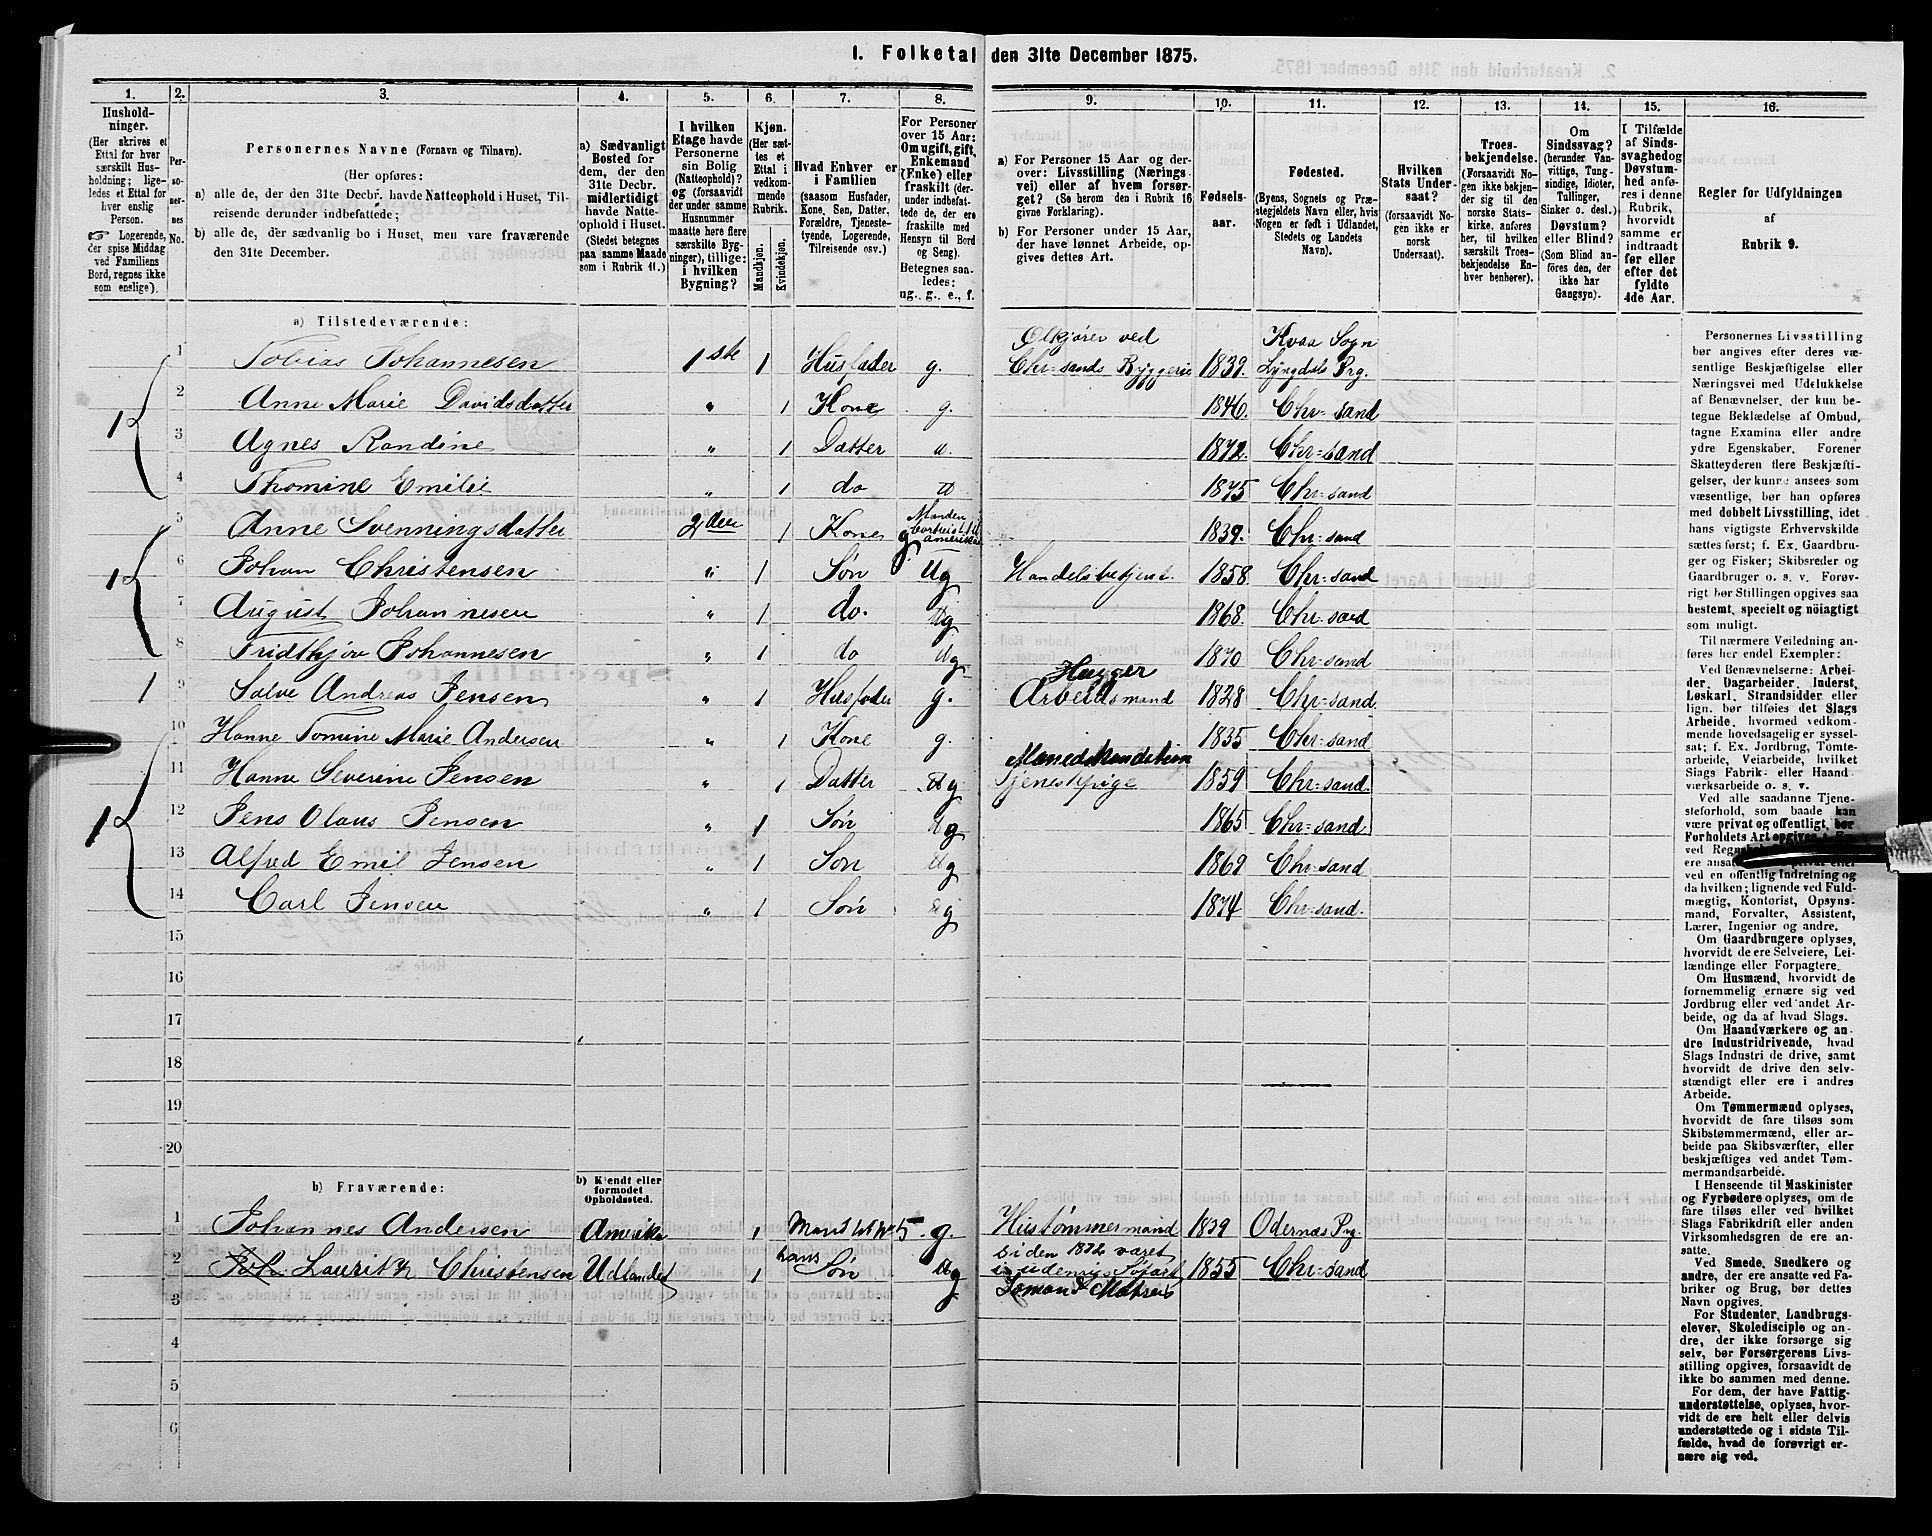 1. Folketal den 31te December 1875.
1.
Hushold-
ninger.
(Her skrives et
Ettal for hver
særskilt Hus-
holdning; lige-
ledes et Ettal for
hver enslig
Person.
☞ Logerende,
der spise Middag
ved Familiens
Bord, regnes ikke
som enslige).
2.
Per-
so-
ner-
nes
No.
3.
Personernes Navne (Fornavn og Tilnavn).
(Her opføres:
a) alle de, der den 31te Decbr. havde Natteophold i Huset, Til-
reisende derunder indbefattede;
b) alle de, der sædvanlig bo i Huset, men vare fraværende
den 31te December.
4.
a) Sædvanligt
Bosted for
dem, der den
31te Decbr.
midlertidigt
havde Natte-
ophold i Huset.
(Stedet betegnes
paa samme Maade
som i Rubrik 11.)
5.
I hvilken
Etage havde
Personerne
sin Bolig
(Natteophold)?
og (forsaavidt
der under samme
Husnummer
maatte høre flere
særskilte Byg-
ninger), tillige:
i hvilken
Bygning?
6.
Kjøn.
(Her sæt-
tes et
Ettal i
vedkom-
mende
Rubrik.
Mandkjøn.
Kvindekjøn.
7.
Hvad Enhver er
i Familien
(saasom Husfader,
Kone, Søn, Datter,
Forældre, Tjeneste-
tyende, Logerende,
Tilreisende osv.)
8.
For Personer
over 15 Aar:
Om ugift, gift,
Enkemand
(Enke) eller
fraskilt (der-
under indbefat-
tede de, der ere
fraskilte med
Hensyn til Bord
og Seng).
Betegnes saa-
ledes:
ug., g., e., f.
9.
a) For Personer 15 Aar og der-
over: Livsstilling (Nærings-
vei) eller af hvem forsør-
get? (Se herom den i Rubrik 16
givne Forklaring).
b) For Personer under 15 Aar,
der have lønnet Arbeide, op-
gives dettes Art.
10.
Fødsels-
aar.
11.
Fødested.
(Byens, Sognets og Præ-
stegjeldets Navn eller, hvis
Nogen er født i Udlandet,
Stedets og Landets
Navn).
12.
Hvilken
Stats Under-
saat?
(forsaavidt No-
gen ikke er
norsk
Undersaat).
13.
Troes-
bekjendelse.
(Forsaavidt No-
gen ikke bekjen-
der sig til den
norske Stats-
kirke, anføres
her, til hvilken
særskilt Troes-
bekjendelse En-
hver henhører).
14.
Om
Sindssvag?
(herunder Van-
vittige, Tung-
sindige, Idioter,
Tullinger,
Sinker o. desl.)
Døvstum?
eller Blind?
(Som Blind an-
føres den, der
ikke har
Gangsyn).
15.
I Tilfælde
af Sinds-
svaghed og
Døvstum-
hed anfø-
res i denne
Rubrik,
hvorvidt
samme er
indtraadt
før eller
efter det
fyldte
4de Aar.
16.
Regler for Udfyldningen
af
Rubrik 9.
a) Tilstedeværende:
Ølkjører ved Kvaa Sogn
1 Tobias Johannesen 1ste 1 Husfader g. Chr=sands Bryggerie 1839. Lyngdals Prg.
1 2 Anne Marie Davidsdatter " 1 Kone g. 1846. Chr=sand
3 Agnes Randine " 1 Datter 1872. Chr=sand
4 Thomine Emilie " 1 do 1875 Chr=sand
5 Anne Svenningsdatter 2den 1 Kone g Manden bortreist til Amerika 1839. Chr=sand
1 6 Johan Christensen " 1 Søn Ug Handelsbetjent. 1858. Chr=sand
7 August Johannesen " 1 do. Ug 1868. Chr=sand
8 Fridthjov Johannesen " 1 do Ug 1870 Chr=sand
Hugger
1 9 Salve Andreas Jensen " 1 Husfader g. Arbeidsmand 1828 Chr=sand.
10 Hanne Tomine Marie Andersen " 1 Kone g. 1835 Chr=sand
11 Hanne Severine Jensen " 1 Datter Ug Tjenestepige 1859 Chr=sand.
1 12 Jens Olaus Jensen " 1 Søn Ug 1865 Chr=sand.
13 Alfred Emil Jensen " 1 Søn Ug 1869 Chr=sand
14 Carl Jensen " 1 Søn Ug 1874 Chr=sand.
15
16
17
18
19
20
b) Fraværende:
b) Kjendt eller
formodet
Opholdssted.
1 Johannes Andersen Amerika 1 Mand til No 5. g. Hustømmermand 1839 Odernæs Prg.
siden 1872 været
2 Lauritz Christensen Udlandet 1 hans Søn Ug i udenrigs Søfart 1855 Chr=sand
Sømand Matros
3
4
5
6
Personernes Livsstilling
bør angives efter deres væ-
sentlige Beskjæftigelse eller
Næringsvei med Udelukkelse
af Benævnelser, der kun be-
tegne Beklædelse af Ombud,
tagne Examina eller andre
ydre Egenskaber. Forener
Skatteyderen flere Beskjæfti-
gelser, der kunne ansees som
væsentlige, bør han opføres
med dobbelt Livsstilling, idet
hans vigtigste Erhvervskilde
sættes først; f. Ex. Gaardbru-
ger og Fisker; Skibsreder og
Gaardbruger o. s. v. Forøv-
rigt bør Stillingen opgives saa
bestemt, specielt og nöiagtigt
som muligt.
Til nærmere Veiledning an-
føres her endel Exempler:
Ved Benævnelserne: Arbei-
der, Dagarbeider, Inderst,
Løskarl, Strandsidder eller
lign. bør tilføies det Slags
Arbeide, hvormed vedkom-
mende hovedsagelig er syssel-
sat; f. Ex. Jordbrug, Tomte-
arbeide, Veiarbeide, hvilket
Slags Fabrik- eller Haand
værksarbeide o. s. v.
Ved alle saadanne Tjene-
steforhold, som baade kan
være privat og offentlig, bør
Forholdets Art opgives,
ved
ere ansat
ved en offentlig Indretning og
da hvilken; lignende ved Fuld-
mægtig, Kontorist, Opsyns-
mand, Forvalter, Assistent,
Lærer, Ingeniør og andre.
Om Gaardbrugere oplyses,
hvorvidt de ere Selveiere, Lei-
lændinge eller Forpagtere.
Om Husmænd, hvorvidt de
fornemmelig ernære sig ved
Jordbrug eller ved andet Ar-
beide, og da af hvad Slags.
Om Haandværkere og an-
dre Industridrivende, hvad
Slags Industri de drive, samt
hvorvidt de drive den selv-
stændigt eller ere i andres
Arbeide.
Om Tømmermænd oplyses,
hvorvidt de fare tilsøs som
Skibstømmermænd, eller ar-
beide paa Skibsværfter, eller
beskjæftiges ved andet Tøm-
mermandsarbeide.
I Henseende til Maskinister
og Fyrbødere oplyses, om de
fare tilsøs eller ved hvilket
Slags Fabrikdrift eller anden
Virksomhedsgren de ere an-
satte.
Ved Smede, Snedkere og
andre, der ere ansatte ved Fa-
briker og Brug, bør dettes
Navn opgives.
For Studenter, Landbrugs-
elever, Skoledisciple og an-
dre, der ikke forsørge sig
selv, bør Forsørgerens Livs-
stilling opgives, forsaavidt de
ikke bo sammen med denne.
For dem, der have Fattig-
understøttelse, oplyses, hvor-
vidt de ere helt eller delvis
understøttede og i sidste Til-
fælde, hvad de forøvrigt er-
nære sig ved.